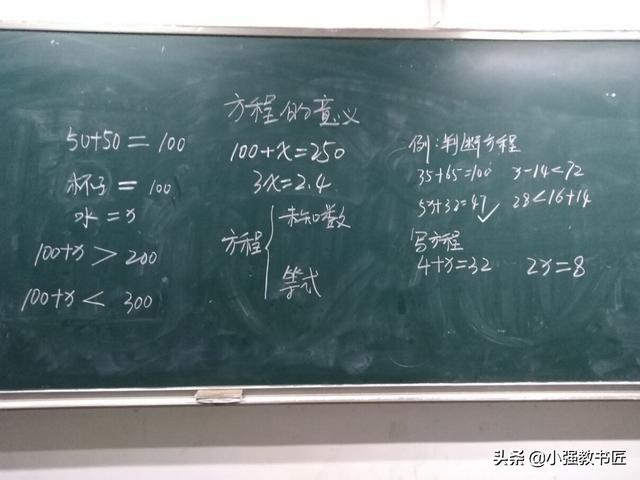 方程的意义
50+50=100
杯子=100
水=x
100+x>200
100+x<300
100+x=250
3x=2.4
方程
未知数
等式
例:判断方程
35+65=100 x-14<72
5x+32=47✓ 28<16+14
写方程
4+x=32 2x=8
头条 @小强教书匠